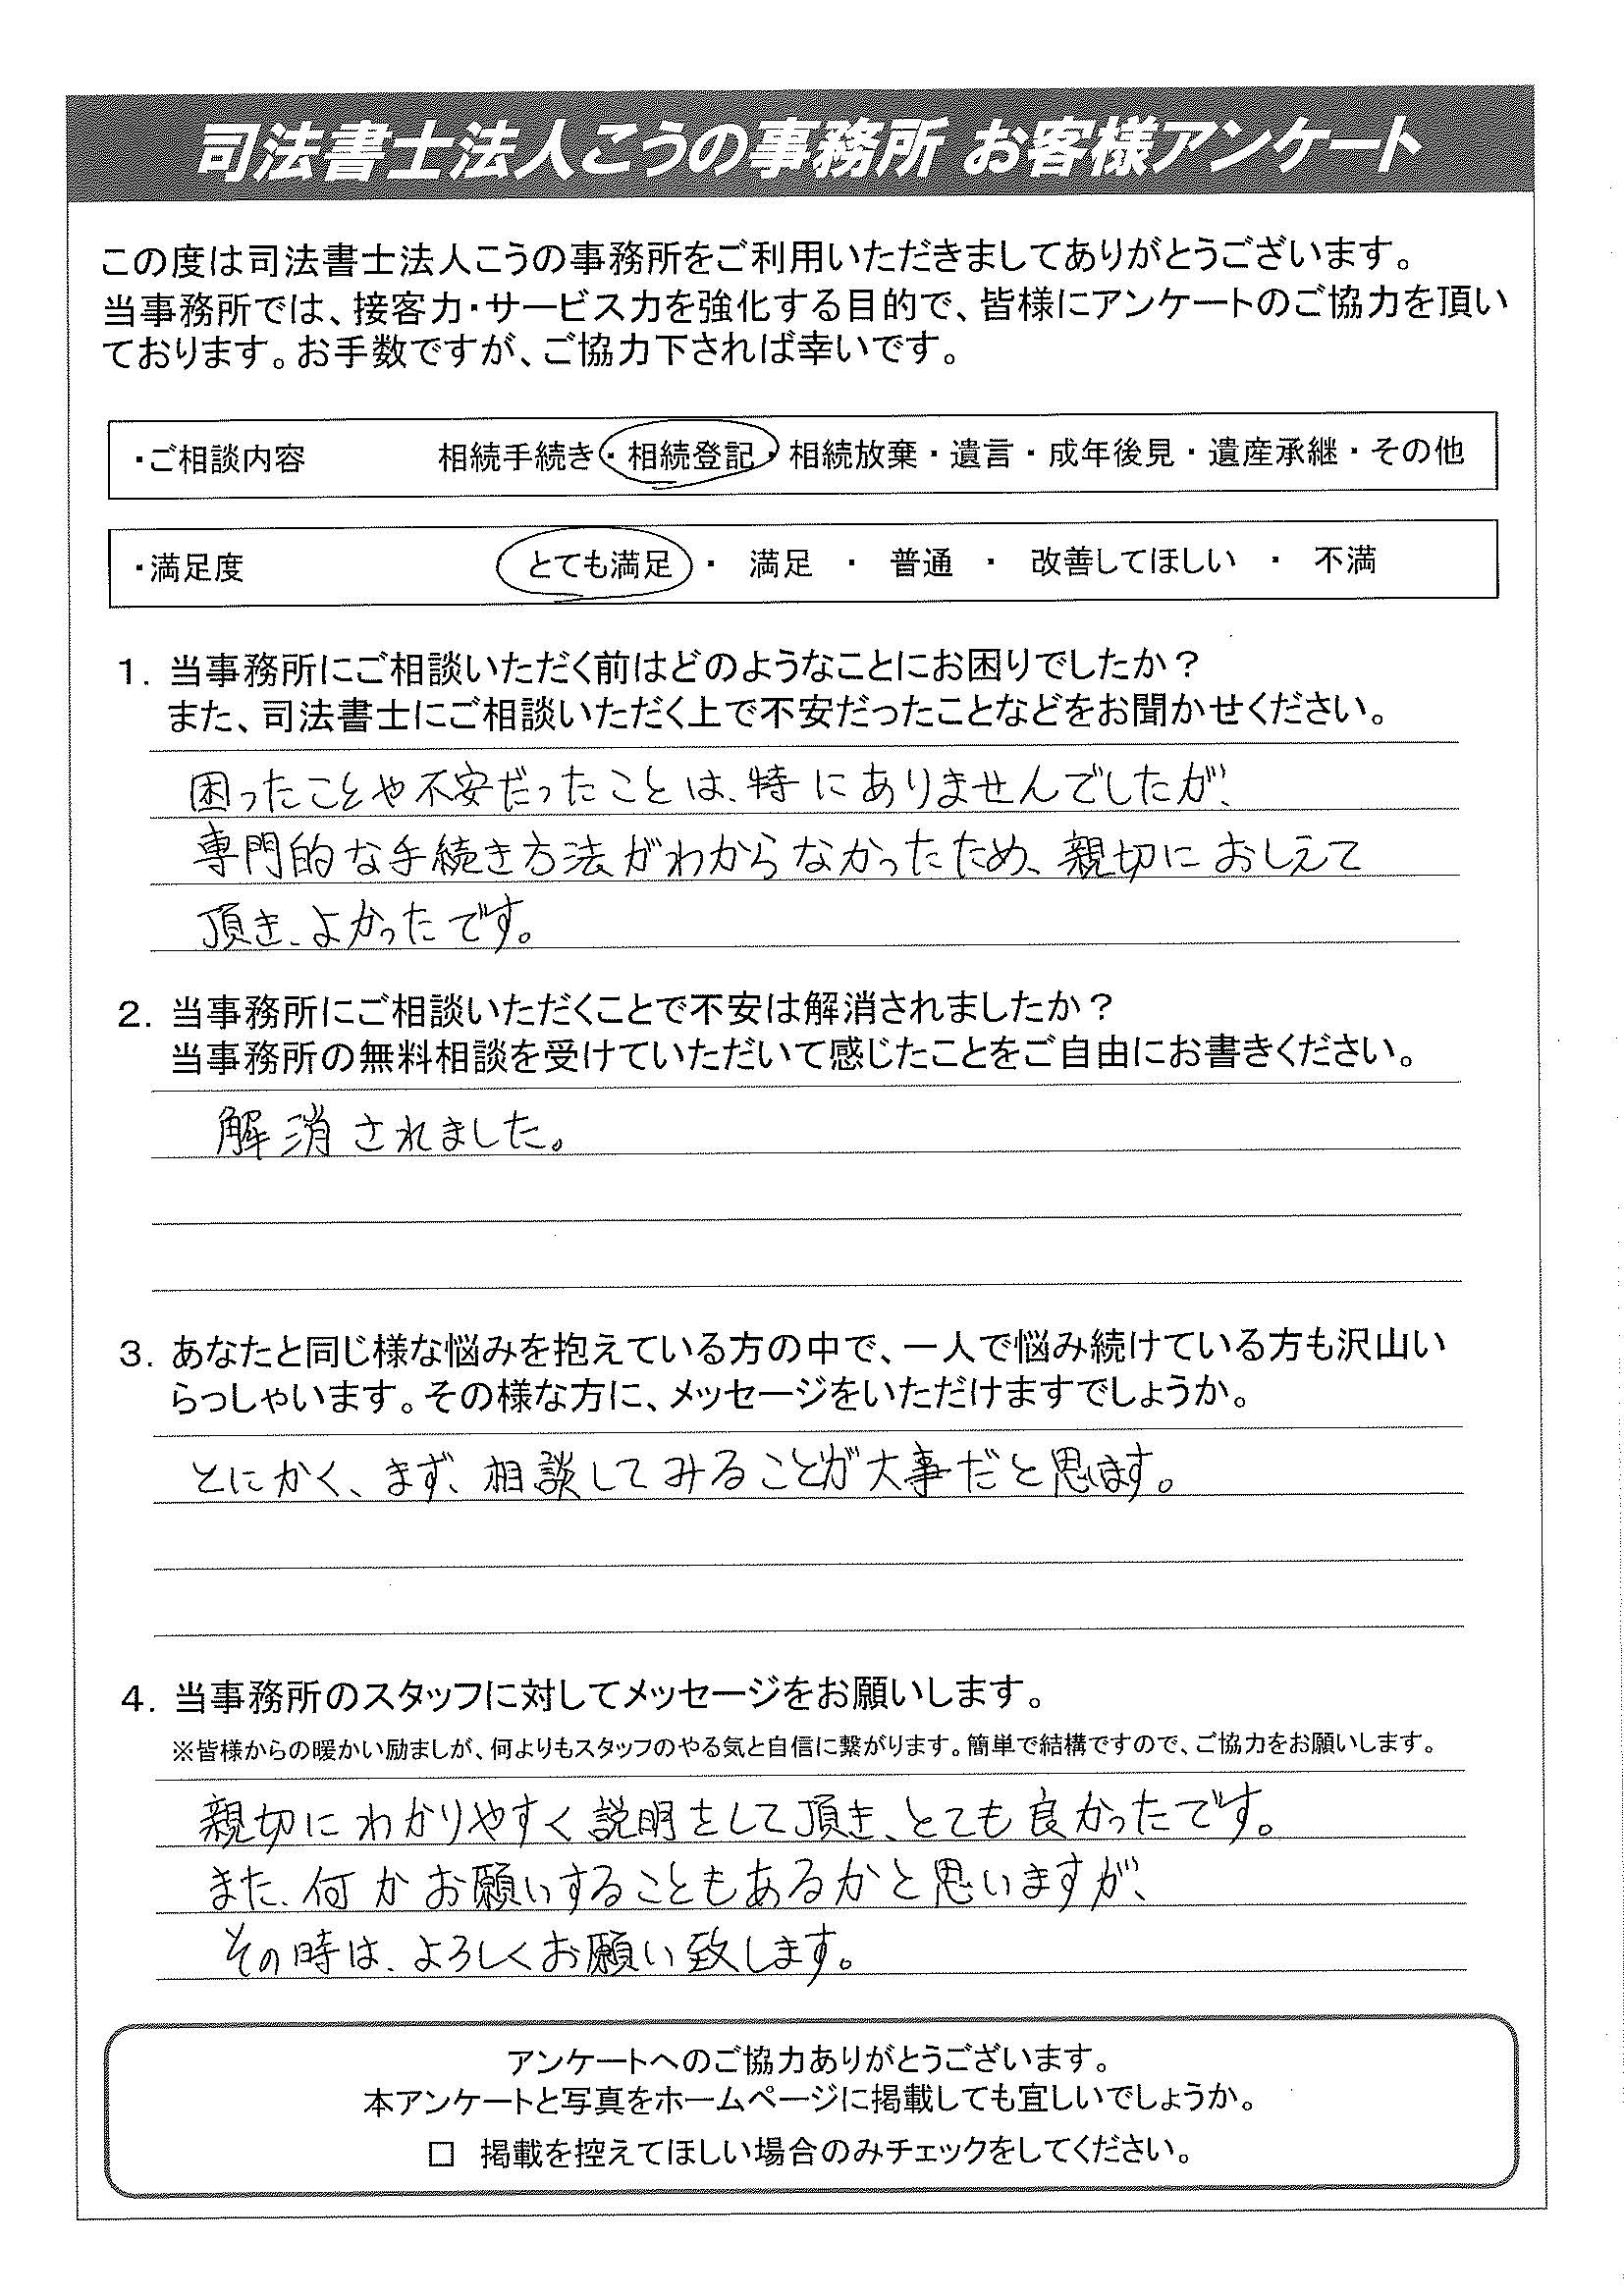 司法書士法人こうの事務所 お客様アンケート
この度は司法書士法人こうの事務所をご利用いただきましてありがとうございます。
当事務所では、接客力・サービス力を強化する目的で、皆様にアンケートのご協力を頂い
ております。お手数ですが、ご協力下されば幸いです。
・ご相談内容 相続手続き・相続登記・相続放棄・遺言・成年後見・遺産承継・その他
・満足度 とても満足 ・ 満足 ・ 普通 ・ 改善してほしい ・ 不満
1. 当事務所にご相談いただく前はどのようなことにお困りでしたか？
また、司法書士にご相談いただく上で不安だったことなどをお聞かせください。
困ったことや不安だったことは、特にありませんでしたが、
専門的な手続き方法がわからなかったため、親切におしえて
頂き、よかったです。
2. 当事務所にご相談いただくことで不安は解消されましたか？
当事務所の無料相談を受けていただいて感じたことをご自由にお書きください。
解消されました。
3. あなたと同じ様な悩みを抱えている方の中で、一人で悩み続けている方も沢山い
らっしゃいます。その様な方に、メッセージをいただけますでしょうか。
とにかく、まず、相談してみることが大事だと思います。
4. 当事務所のスタッフに対してメッセージをお願いします。
※皆様からの暖かい励ましが、何よりもスタッフのやる気と自信に繋がります。簡単で結構ですので、ご協力をお願いします。
親切にわかりやすく説明をして頂き、とても良かったです。
また、何かお願いすることもあるかと思いますが、
その時は、よろしくお願い致します。
アンケートへのご協力ありがとうございます。
本アンケートと写真をホームページに掲載しても宜しいでしょうか。
□ 掲載を控えてほしい場合のみチェックをしてください。